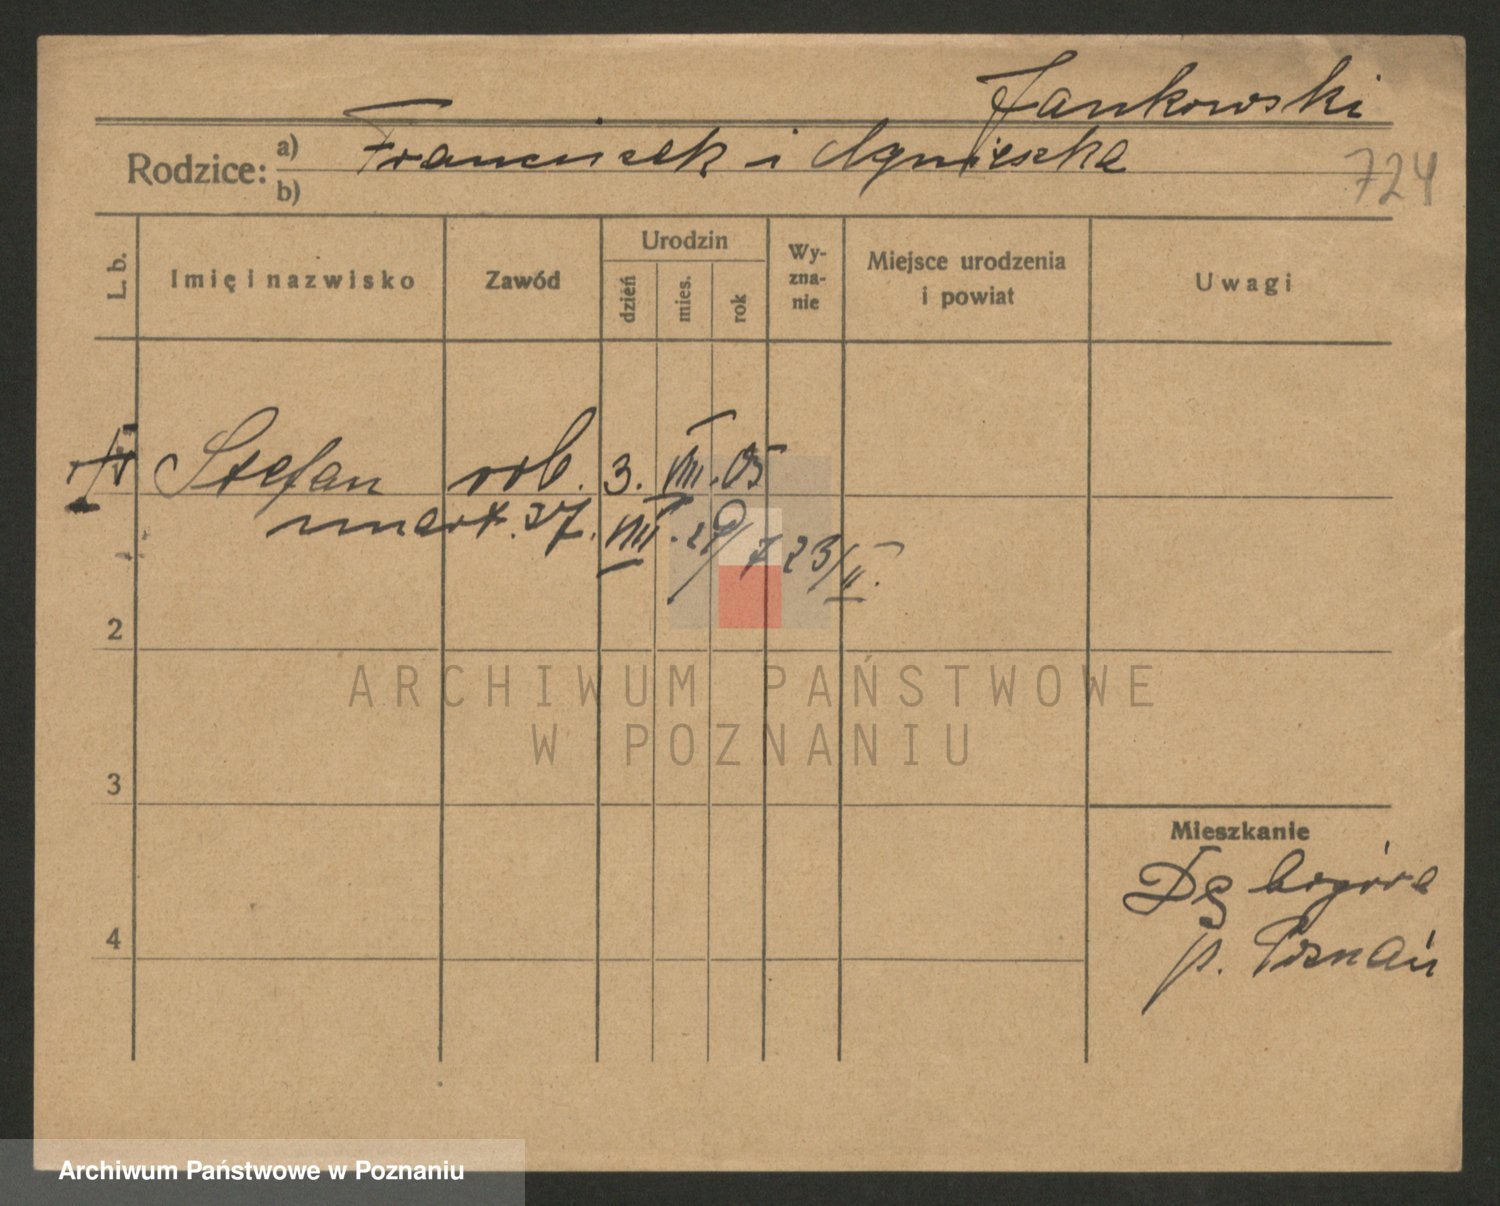 Jankowski
Rodzice: a) Franciszek i Agnieszka
b)
724
L. b.
Imię i nazwisko
Zawód
Urodzin
dzień
mies.
rok
Wy-
zna-
nie
Miejsce urodzenia
i powiat
Uwagi
Stefan rob. 3. VIII. 05
umart. 27. VIII. 29/723/II.
2
3
4
Mieszkanie
Dębogóra
p. Poznań
ARCHIWUM PAŃSTWOWE
W POZNANIU
Archiwum Państwowe w Poznaniu